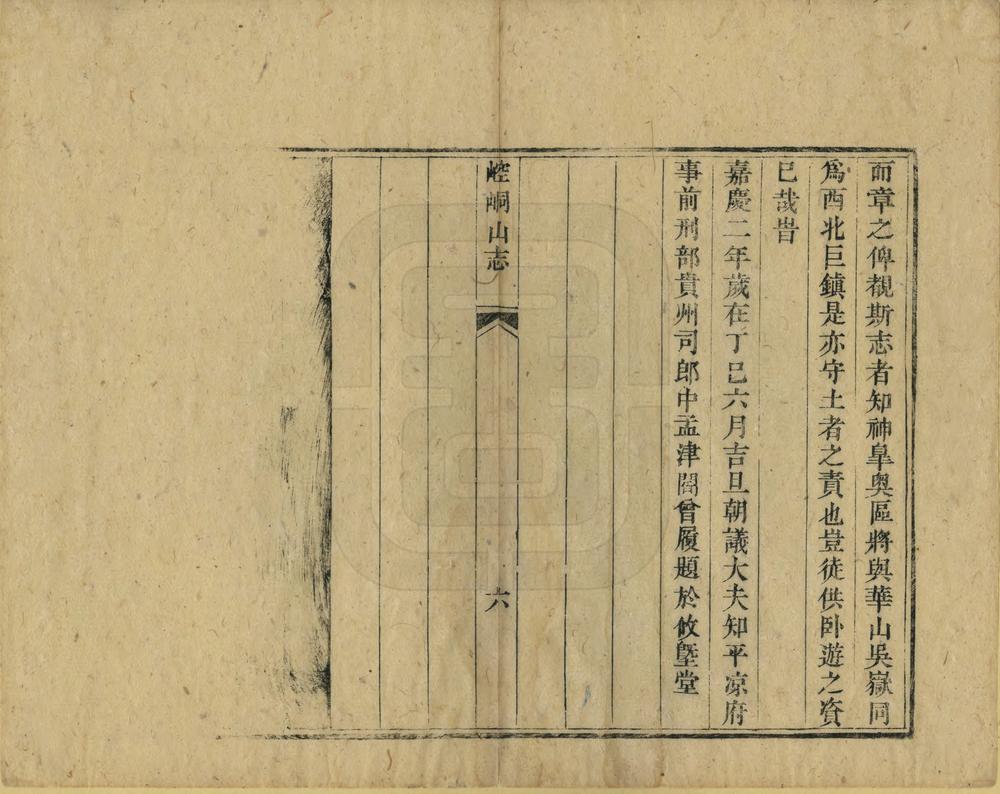 而章之俾覩斯志者知神皐奥區將與華山吳嶽同
爲西北巨鎮是亦守土者之責也豈徒供卧遊之資
已哉旹
嘉慶二年歲在丁巳六月吉旦朝議大夫知平凉府
事前刑部貴州司郎中孟津閻曾履題於攸塈堂
崆峒山志
六